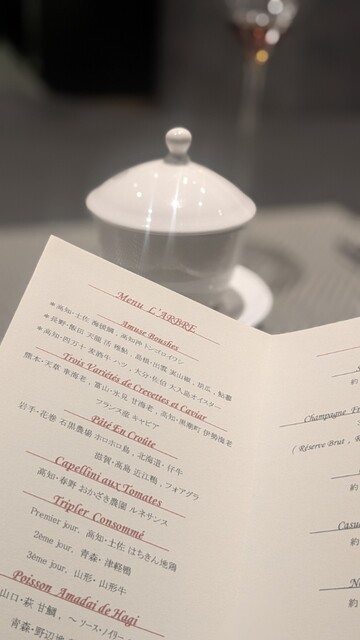 Menu L'ARBRE
Amuse Bouches
＊高知・土佐 海援鯛 , 高知沖 トンゴロイワシ
＊長野・飯田 天龍 活 稚鮎 , 島根・出雲 実山椒 , 胡瓜 , 鮎醤
＊高知・四万十 麦酒牛 ハツ , 大分・佐伯 大入島オイスター
Trois Variétés de Crevettes et Caviar
熊本・天草 車海老 , 富山・氷見 甘海老 , 高知・黒潮町 伊勢海老
フランス産 キャビア
Pâté En Croûte
岩手・花巻 石黒農場 ホロホロ鳥 , 北海道・仔牛
滋賀・高島 近江鴨 , フォアグラ
Capellini aux Tomates
高知・春野 おかざき農園 ルネサンス
Tripler Consommé
Premier jour, 高知・土佐 はちきん地鶏
2ème jour, 青森・津軽鴨
3ème jour, 山形・山形牛
Poisson Amadai de Hagi
山口・萩 甘鯛 , ～ ソース・ノイリー
青森・野辺地
Champagne
(Réserve Brut ,
約
約
約